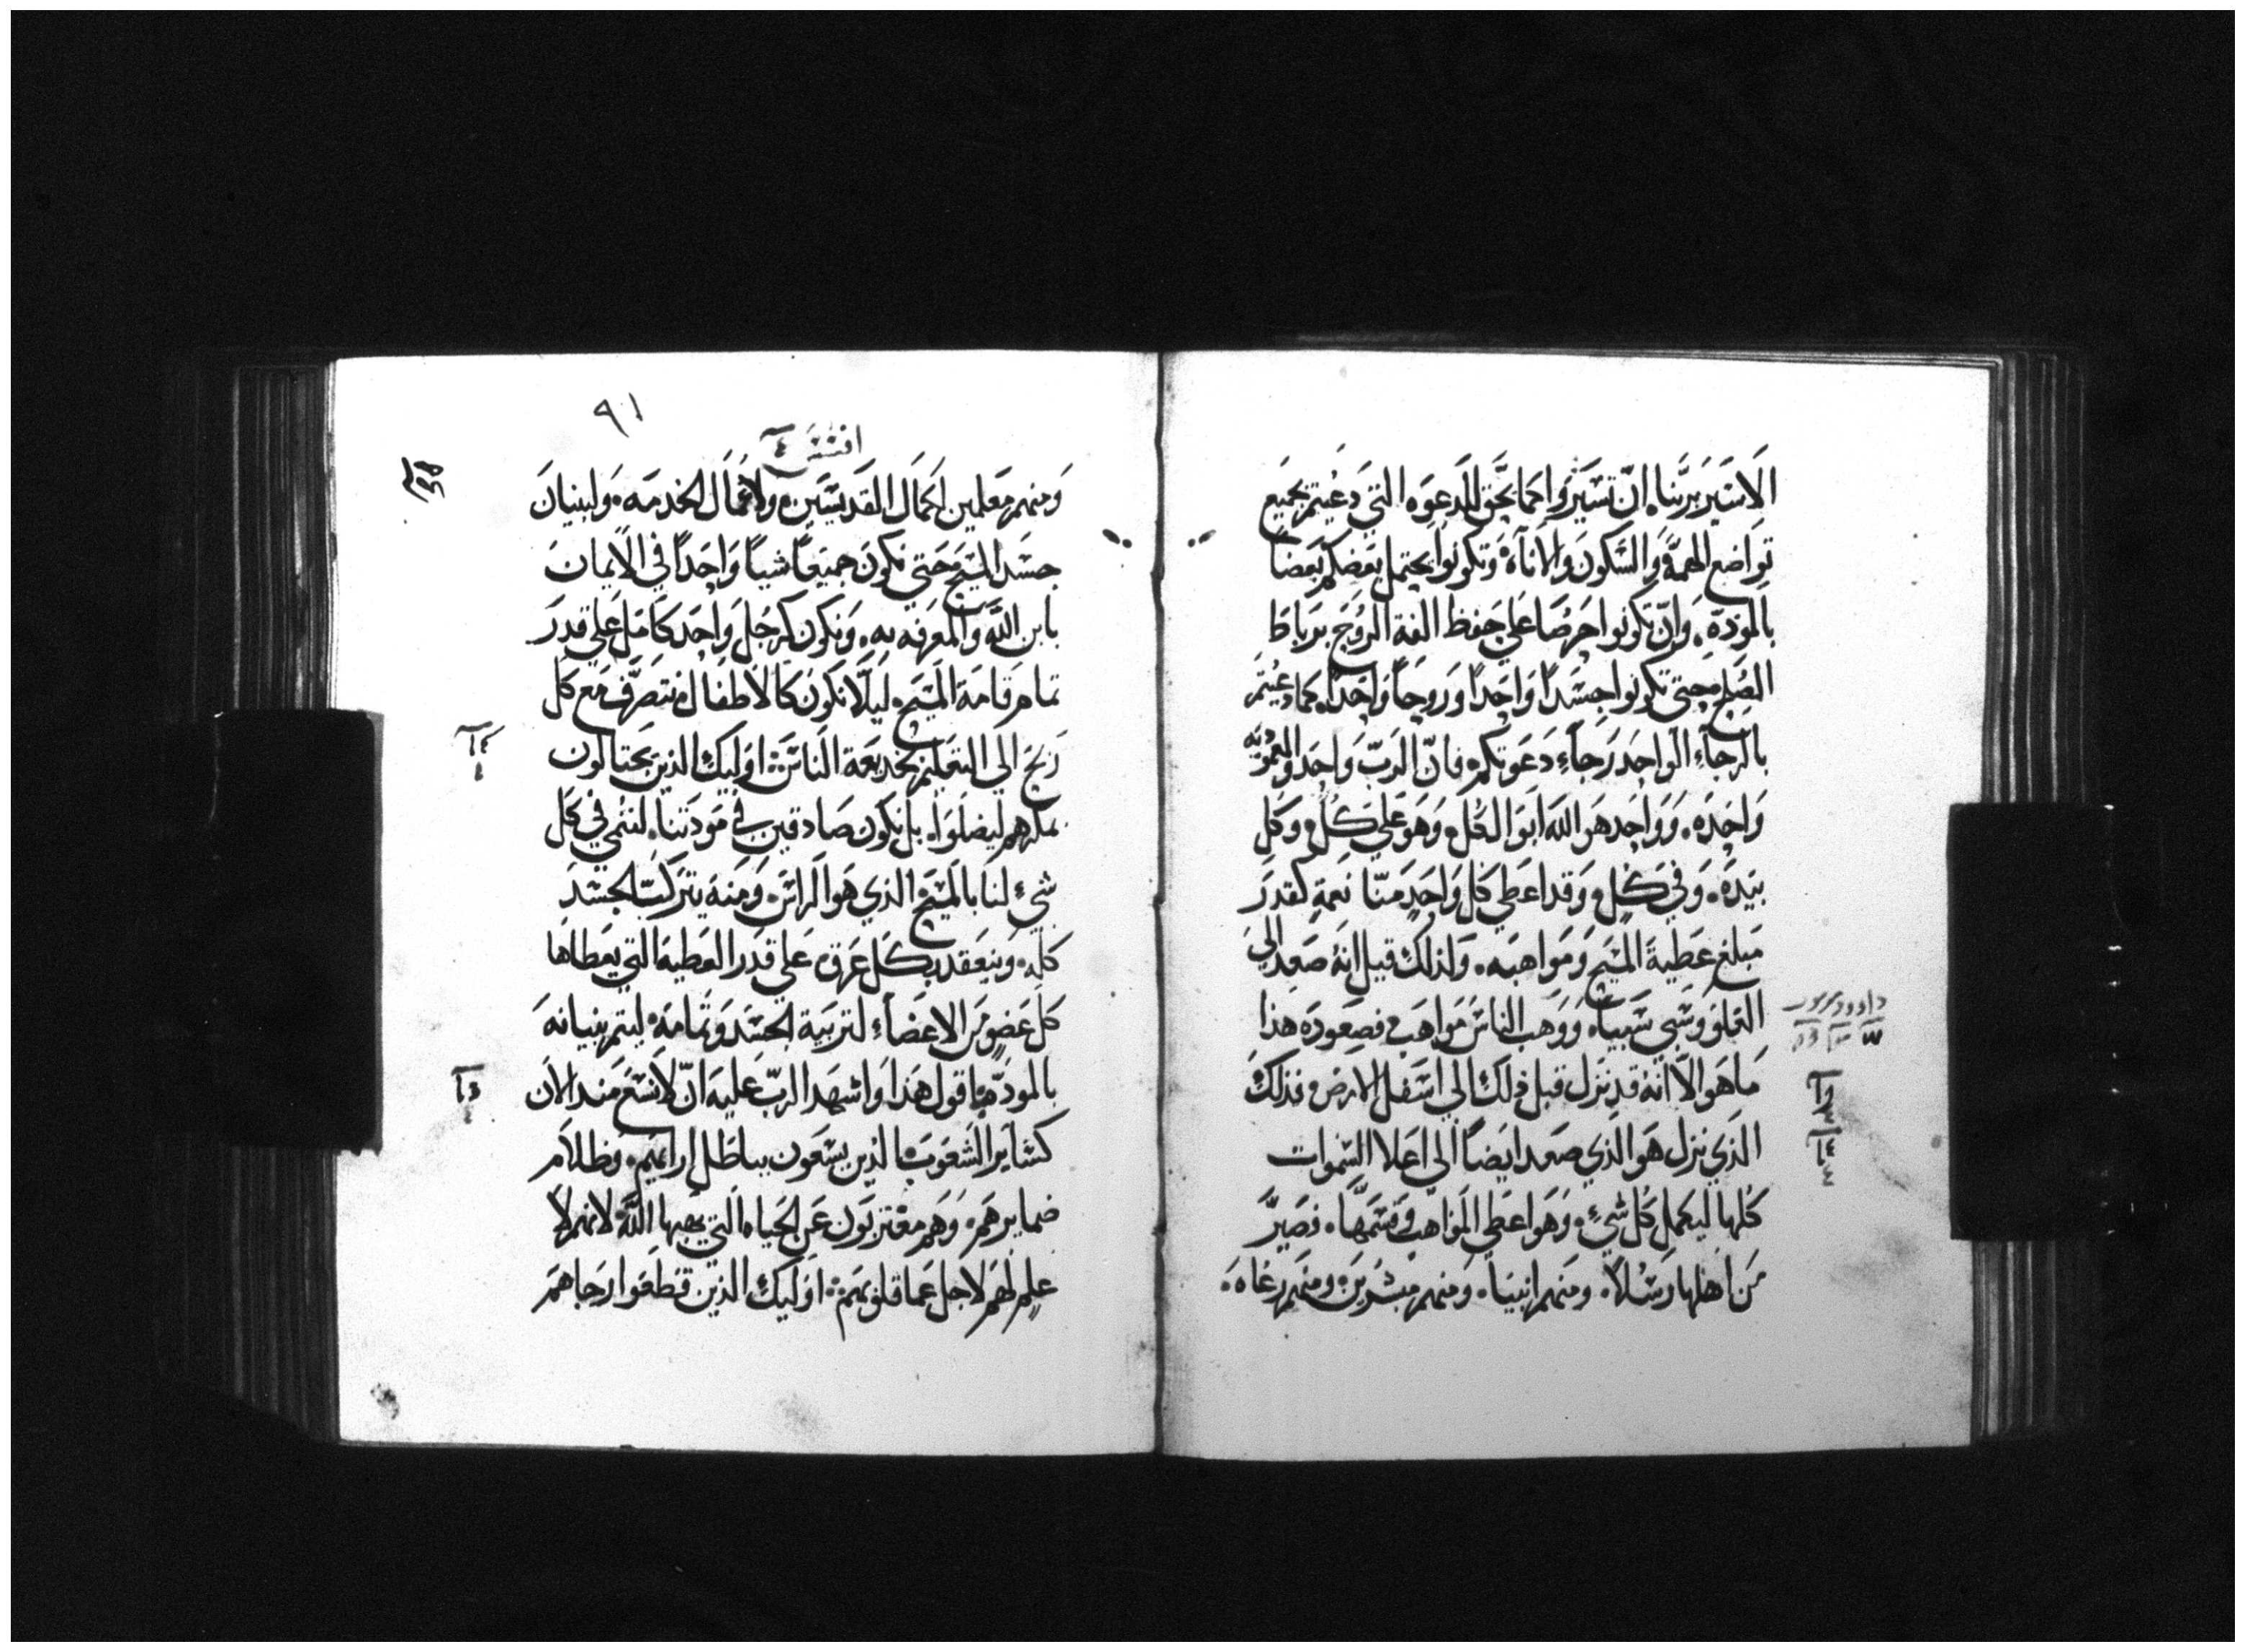 الاسير بربنا. ان تسيروا كما يحق للدعوه التي دعيتم بجميع
تواضع الهمة والسكون والاناة وتكونوا يحتمل بعضكم بعضا
بالمودة. وان تكونوا حرصا علي حفظ الفة الروح برباط
الصلح حتي تكونوا جسدا واحدا وروحا واحدا. كما دعيتم
بالرجاء الواحد رجاء دعوتكم فان الرب واحد والمعموديه
واحده. وواحد هو الله ابو الكل وهو علي كل وكل
بيده. وفي كل وقد اعطي كل واحد منا نعمة كقدر
مبلغ عطية المسيح ومواهبه. ولذلك قيل انه صعد الي
العلو وسبي سبيا. ووهب الناس مواهب فصعوده هذا
ما هو الا انه قد نزل قبل ذلك الي اسفل الارض فذلك
الذي نزل هو الذي صعد ايضا الي اعلا السموات
كلها ليكمل كل شيء. وهو اعطي المواهب وقسمها. فصير
من اهلها رسلا. ومنهم انبيا. ومنهم مبشرين ومنهم رعاه.
داوود مزمور
٩١
افسس ٤
ومنهم معلمين لكمال القديسين ولاعمال الخدمه. ولبنيان
جسد المسيح حتي نكون جميعا شيا واحدا في الايمان
بابن الله والمعرفه به. ونكون كرجل واحد كامل علي قدر
تمام قامة المسيح. ليلا نكون كالاطفال نتصرف مع كل
ريح الي التعليم بخديعة الناس اوليك الذين يحتالون
بمكرهم ليضلوا. بل نكون صادقين في مودتنا. لننمي في كل
شيء لنا بالمسيح الذي هو الراس. ومنه يتركب الجسد
كله. وينعقد بكل عرق علي قدر العطية التي يعطاها
كل عضو من الاعضاء لتربية الجسد وتمامه ليتم بنيانه
بالمودة. اقول هذا واشهد الرب عليه ان لا نسع منذ الان
كساير الشعوب الذين يسعون بباطل ارايهم. وظلام
ضمايرهم. وهم مغتربون عن الحياه التي يهبها الله لانهم لا
علم لهم لاجل عما قلوبهم اوليك الذين قطعوا رجاهم